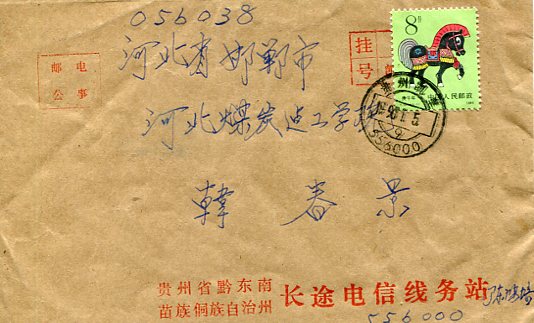 056038
河北省邯郸市
挂号
邮电
公事
8分
中国人民邮政
贵州凯里
1990.1.5
556000
河北煤炭建工学校
韩春景
贵州省黔东南
苗族侗族自治州
长途电信线务站
556000